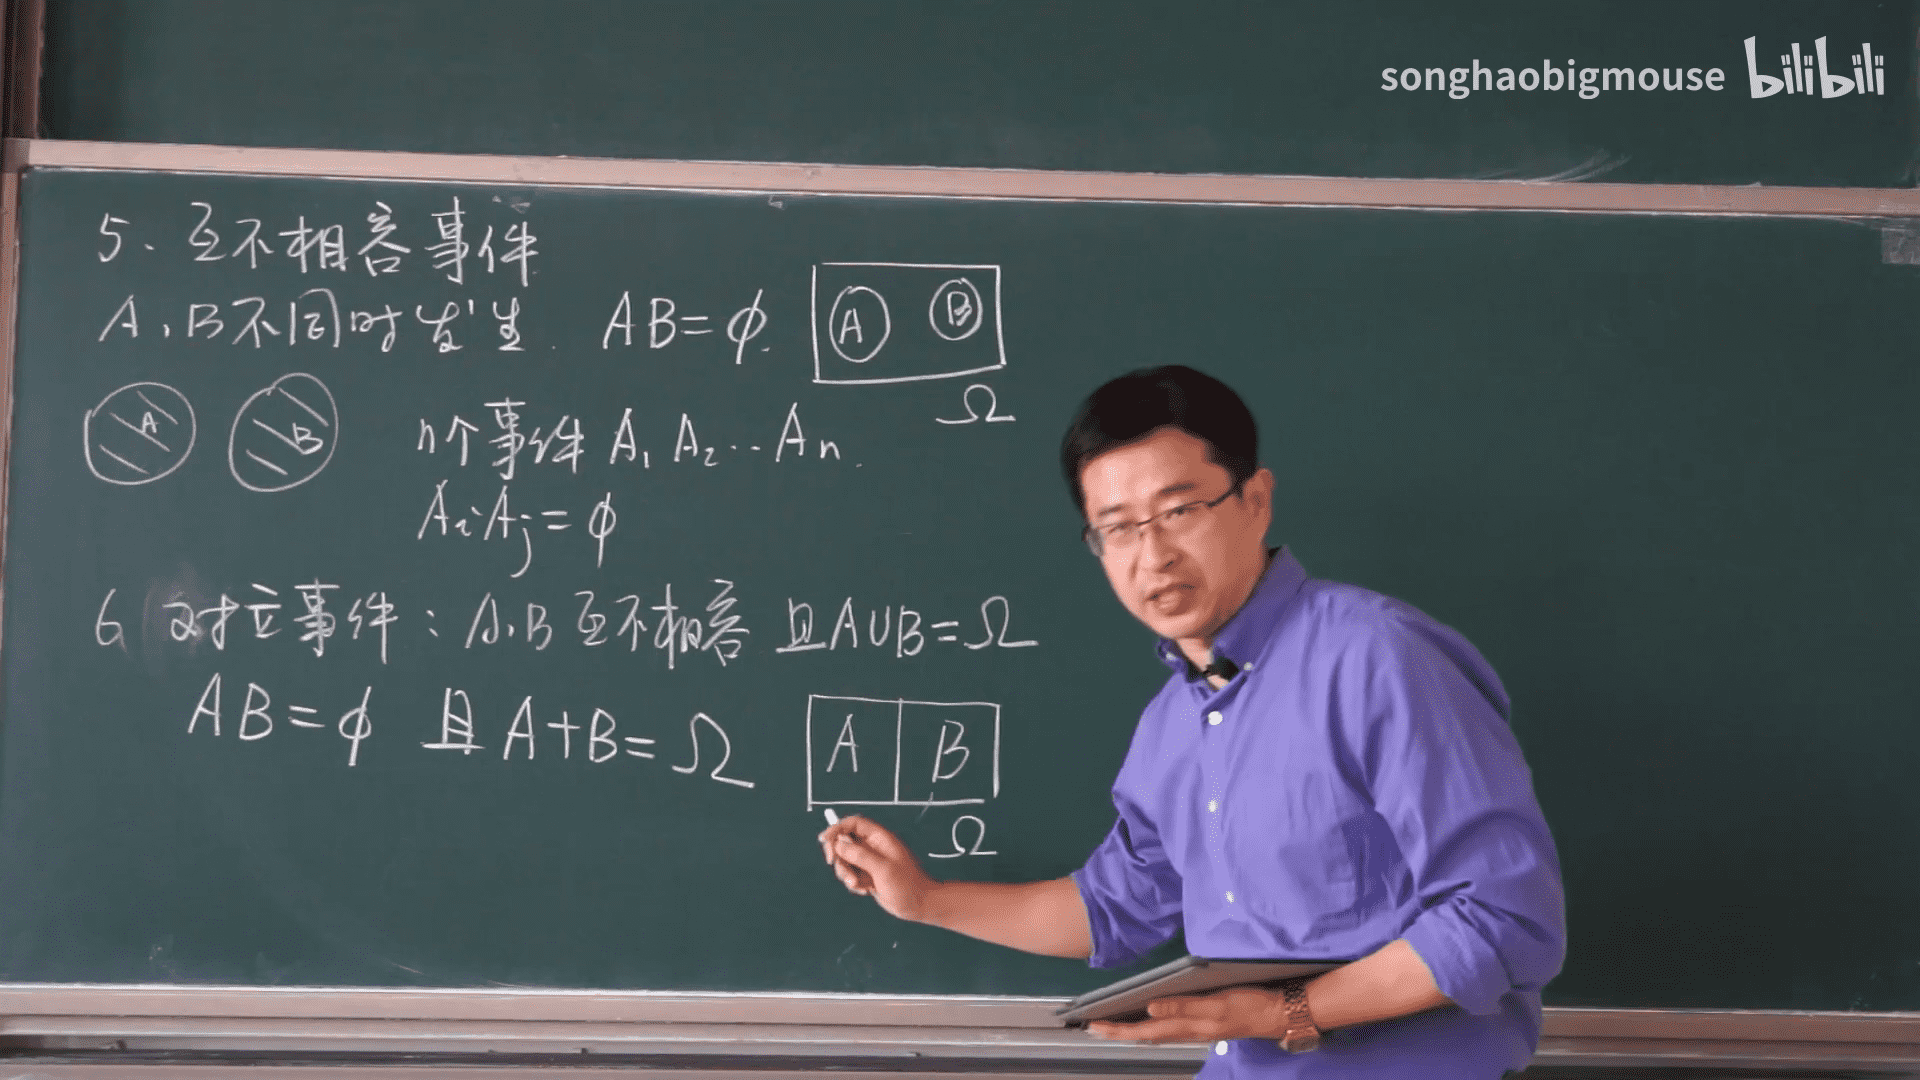 songhaobigmouse bilibili
5. 互不相容事件
A,B不同时发生. AB=φ.
A B
Ω
A B
n个事件 A₁ A₂…An.
AᵢAⱼ=φ
6 对立事件:A,B互不相容 且A∪B=Ω
AB=φ 且A+B=Ω
A B
Ω